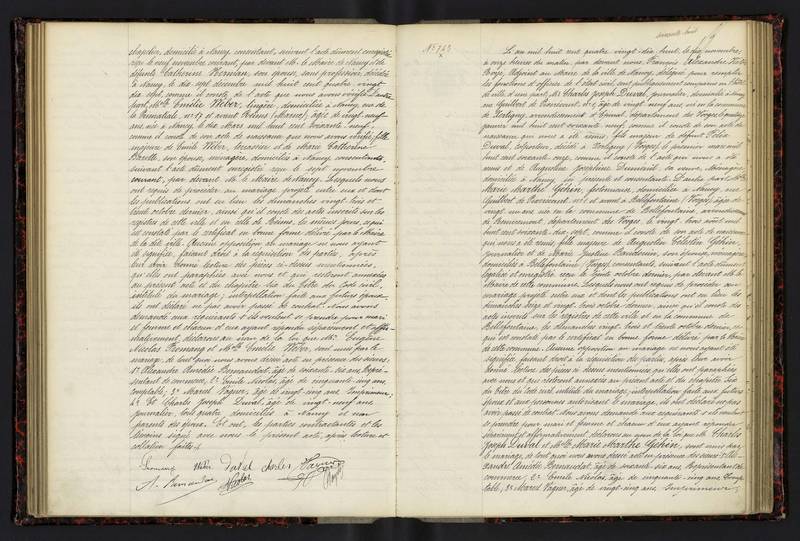 chapelier, domicilié à Nancy, consentant, suivant l'acte dûment enregistré
reçu le neuf novembre courant, par devant M. le Maire de Nancy et de
défunte Catherine Herman, son épouse, sans profession, décédée
à Nancy, le dix sept décembre mil huit cent quatre vingt
dix sept, comme il conste de l'acte que nous avons vérifié
part, Mlle Emilie Wéber, lingère, domiciliée à Nancy, rue de
la Primatiale, nº 17 et avant Reims (Marne), âgée de vingt-neuf
ans née à Nancy, le dix Mars mil huit cent soixante-neuf,
comme il conste de son acte de naissance que nous avons vérifié, fille
majeure de Emile Wéber, brossier et de Marie Catherine
Barelle, son épouse, ménagère, domiciliés à Nancy, consentants,
suivant l'acte dûment enregistré reçu le sept novembre
courant, par devant M. le Maire de Nancy. Lesquels nous
ont requis de procéder au mariage projeté entre eux et dont
les publications ont eu lieu les dimanches vingt trois et
trente octobre dernier, ainsi qu'il conste des actes inscrits sur les
registres de cette ville et en celle de Reims, les mêmes jours, ce qui
est constaté par le certificat en bonne forme délivré par le Maire
de la dite ville. Aucune opposition au mariage ne nous ayant
été signifiée, faisant droit à la réquisition des parties, après
leur avoir donné lecture des pièces ci-dessus mentionnées,
qu'elles ont paraphées avec nous et qui resteront annexées
au présent acte et du chapitre six du titre du Code civil,
intitulé du mariage; interpellation faite aux futurs époux,
ils ont déclaré ne pas avoir passé de contrat. Nous avons
demandé aux requérants s'ils veulent se prendre pour mari
et femme et chacun d'eux ayant répondu séparément et affir-
mativement, déclarons au nom de la loi que M. Eugène
Nicolas Promang et Mlle Emilie Wéber, sont unis par le
mariage, de tout quoi nous avons dressé acte en présence des sieurs:
1º Alexandre Amédée Bernaudat, âgé de soixante-six ans, Représentant
de commerce, 2º Emile Nicolas, âgé de cinquante-cinq ans,
comptable; 3º Marcel Vagner, âgé de vingt-cinq ans, Imprimeur,
4º Charles Joseph Duval, âgé de vingt-neuf ans
journalier, tous quatre domiciliés à Nancy et non
parents des époux. Et ont, les parties contractantes et les
témoins signé avec nous le présent acte, après lecture et
collation faites.
Promang Wéber Duval
Nicolas
Nº 743
soixante huit
L'an mil huit cent quatre vingt-dix huit, le dix novembre,
à onze heures du matin, par devant nous, François Alexandre
Adjoint au Maire de la ville de Nancy, délégué pour remplir
les fonctions d'officier de l'état civil, sont publiquement comparus en l'hôtel
de ville, d'une part, M. Charles Joseph Duval, journalier, domicilié à Nancy,
rue Guilbert de Pixérécourt, nº 1, âgé de vingt-neuf ans, né en la commune
de Xertigny, arrondissement d'Epinal, département des Vosges, le
janvier mil huit cent soixante neuf, comme il conste de son acte de
naissance qui nous a été remis, fils majeur de défunt Félix
Duval, décédé à Xertigny (Vosges), le premier mars mil
huit cent soixante onze, comme il conste de l'acte qui nous a été
remis et de Augustine Joséphine Dumaret, sa veuve, ménagère,
domiciliée à Nancy, ici présente et consentante. D'autre part Mlle
Marie Marthe Géhin, domiciliée à Nancy, rue
Guilbert de Pixérécourt, nº 1 et avant à Bellefontaine (Vosges), âgée de
vingt un ans, née en la commune de Bellefontaine, arrondissement
de Remiremont, département des Vosges, le vingt trois avril mil
huit cent soixante dix sept, comme il conste de son acte de naissance
qui nous a été remis, fille majeure de Augustin Célestin Géhin,
journalier et de Marie Justine son épouse, ménagère,
domiciliés à Bellefontaine (Vosges), consentants, suivant l'acte dûment
légalisé et enregistré reçu le trente octobre dernier, par devant M. le
Maire de cette commune. Lesquels nous ont requis de procéder au
mariage projeté entre eux et dont les publications ont eu lieu les
dimanches seize et vingt trois octobre dernier, ainsi qu'il conste des
actes inscrits sur les registres de cette ville et en la commune de
Bellefontaine, les dimanches vingt trois et trente octobre dernier, ce
qui est constaté par le certificat en bonne forme délivré par le Maire
de cette commune. Aucune opposition au mariage ne nous ayant été
signifiée, faisant droit à la réquisition des parties, après leur avoir
donné lecture des pièces ci-dessus mentionnées, qu'elles ont paraphées
avec nous et qui resteront annexées au présent acte et du chapitre six
du titre du Code civil, intitulé du mariage, interpellation faite aux futurs
époux et aux personnes autorisant le mariage, ils ont déclaré ne pas
avoir passé de contrat. Nous avons demandé aux requérants s'ils veulent
se prendre pour mari et femme et chacun d'eux ayant répondu
séparément et affirmativement, déclarons au nom de la loi que M. Charles
Joseph Duval et Mlle Marie Marthe Géhin, sont unis par
le mariage, de tout quoi nous avons dressé acte en présence des sieurs: 1º Alex-
andre Amédée Bernaudat, âgé de soixante-six ans, Représentant de
commerce; 2º Emile Nicolas, âgé de cinquante-cinq ans, Comp-
table; 3º Marcel Vagner, âgé de vingt-cinq ans, Imprimeur;